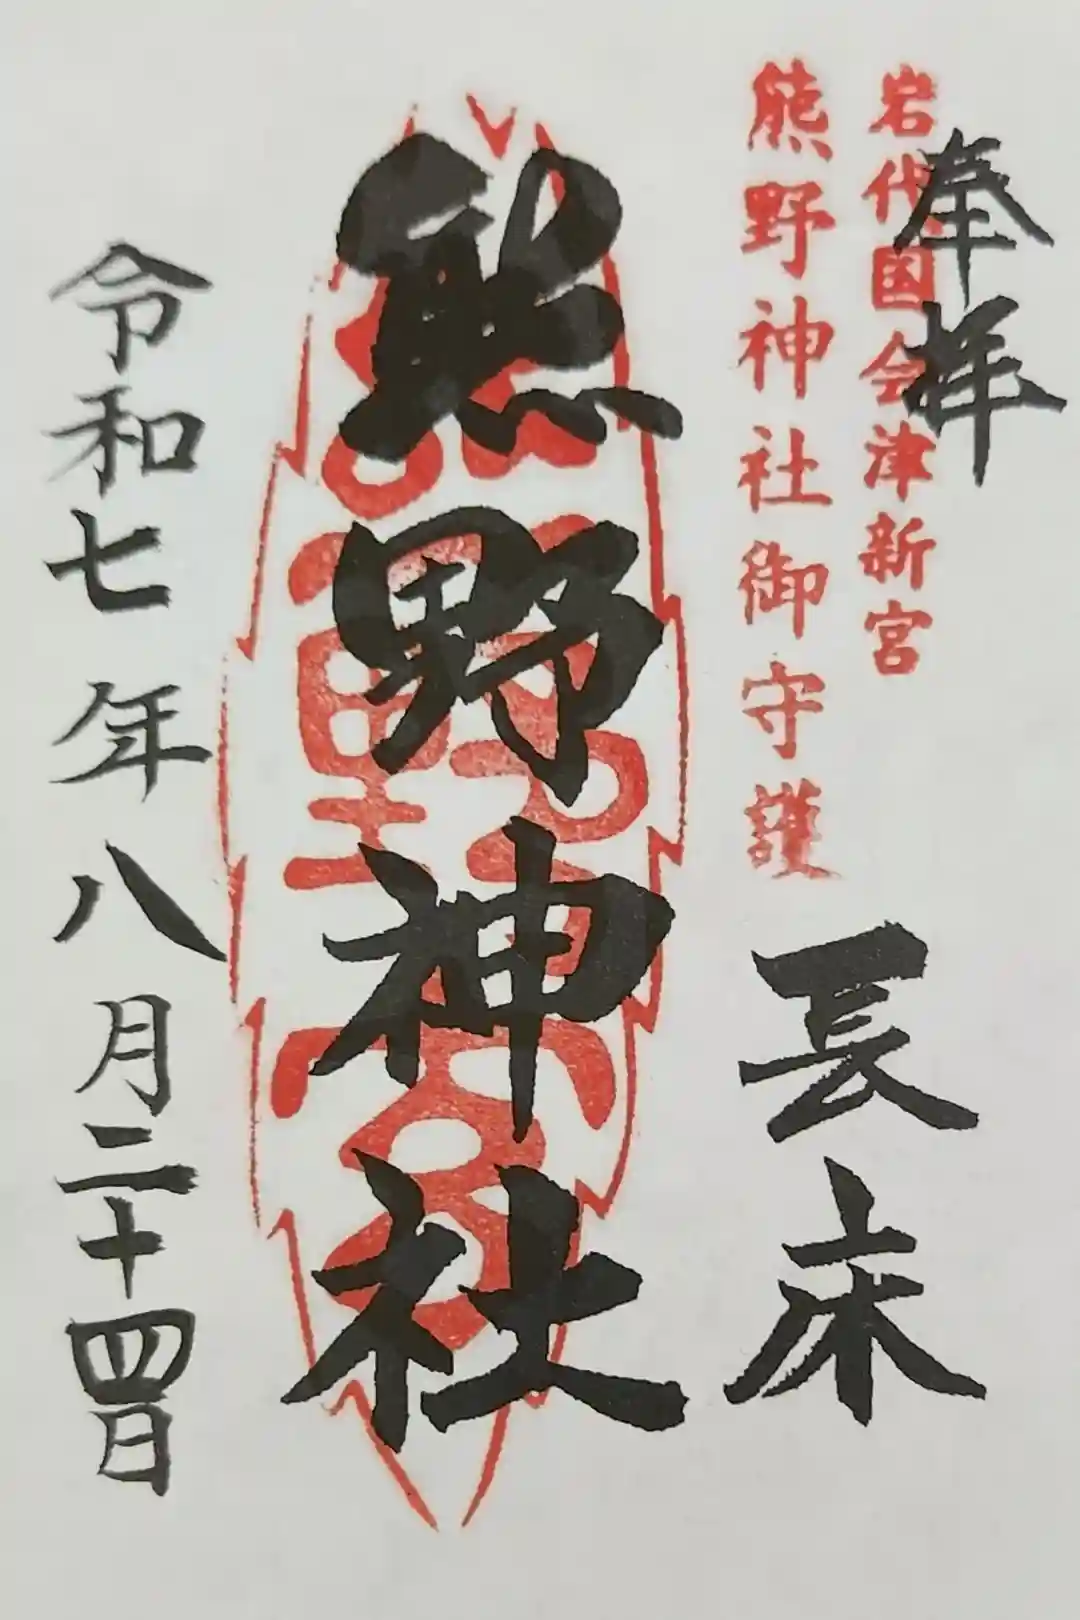 奉拝
岩代国会津新宮
熊野神社御守護
長床
熊野神社
令和七年八月二十四日